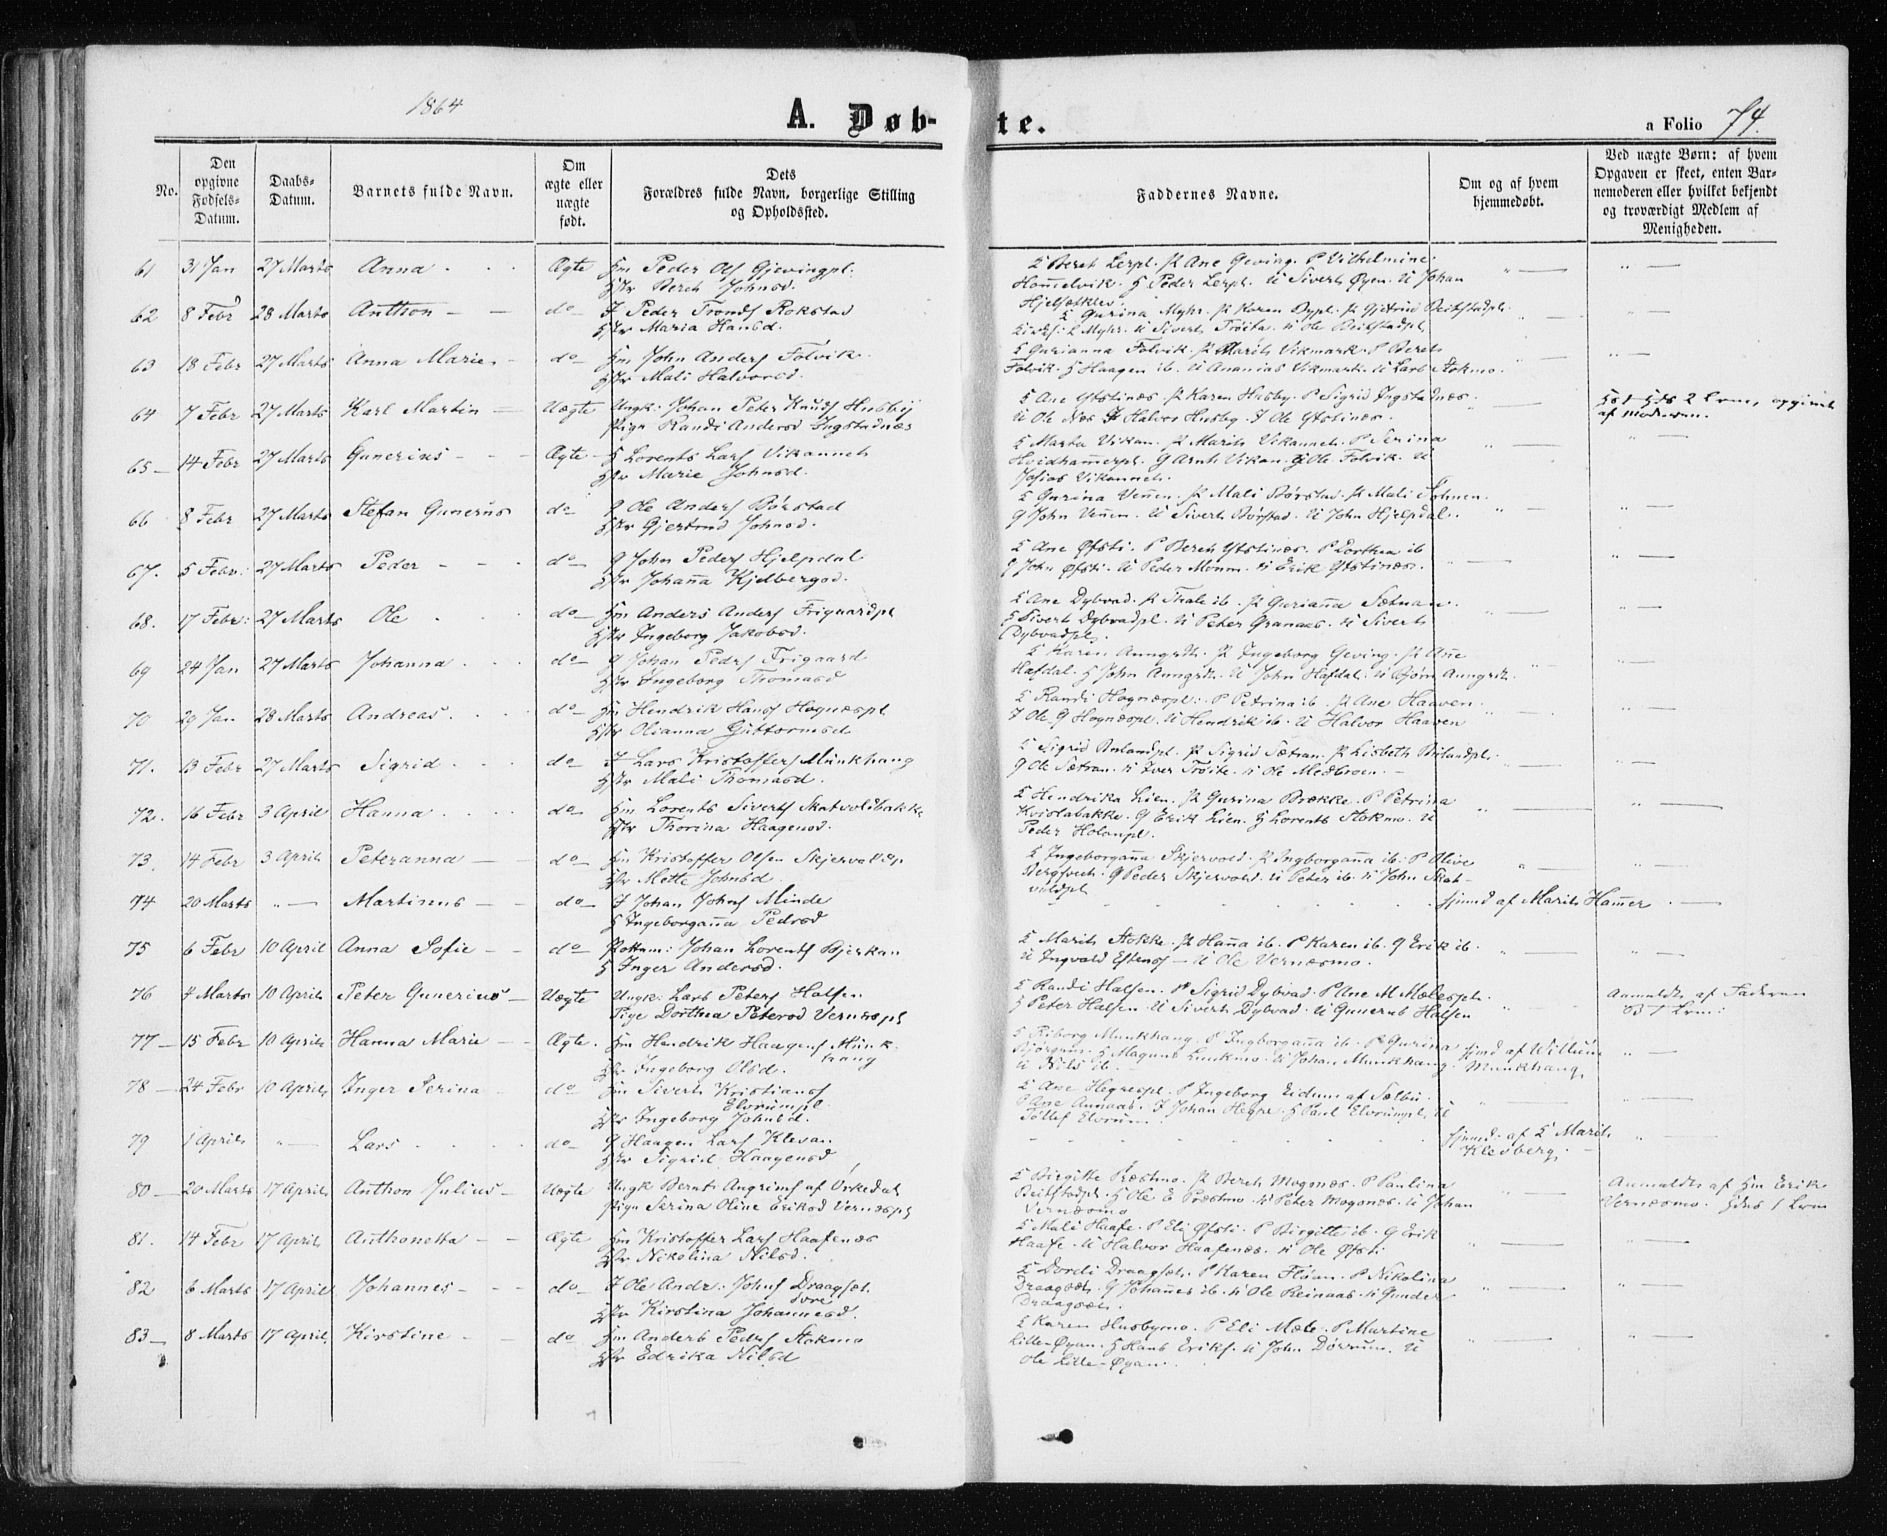 1864
A. Døb-
te.
a Folio 74.
No.
Den
opgivne
Fødsels-
Datum.
Daabs-
Datum.
Barnets fulde Navn.
Om
ægte eller
uægte
født.
Dets
Forældres fulde Navn, borgerlige Stilling
og Opholdssted.
Faddernes Navne.
Om og af hvem
hjemmedøbt.
Ved uægte Børn: af hvem
Opgaven er skeet, enten Bar-
nemoderen eller hvilket bekjendt
og troværdigt Medlem af
Menigheden.
61 31 Jan 27 Marts Anna Ægte Hm Peder Ols Gjevingpl.
Hstr Bereth Johnsd.
K Bereth Lerpl. P Ane Geving. P Vilhelmine
Hommelvik. H Peder Lerpl. U Siverth Øyen. U Johan
62 8 Febr 28 Marts Anthon do I Peder Tronds Rokstad
Hstr Maria Hansd.
K Gurina Myhr. P Karen Bypl. P Gjetrud Beitstadpl.
Myhr. U Siverts Trøite. U Ole Beitstadpl
63 18 Febr 27 Marts Anna Marie do Hm John Anders Folvik
Hstr Mali Halvorsd.
K Gurianna Folvik. P Marith Vikmark. P Bereth
Folvik. H Haagen ib. U Ananias Vikmark. U Lars Stokmo.
64 7 Febr 27 Marts Karl Martin Uægte Ungk: Johan Peter Knuds Husby
Pige Randi Andersd Ingstadnæs
K Ane Ytstinæs. P Karen Husby. P Sigrid Ingstadnæs
U Ole Næs. Halvor Husby. I Ole Ytstinæs.
opgivet
af moderen.
65 14 Febr 27 Marts Gunerius Ægte H Lorents Lars Vikanneth
Hstr Marie Johnsd.
K Marta Vikan. P Marith Vikanneth. P Serina
Hvidhammerpl. G Arnt Vikan. Ole Folvik. U
Josias Vikanneth.
66 8 Febr 27 Marts Stefan Gunerius do G Ole Anders Børstad
Hstr Gjertrud Johnsd.
K Gurina Vennen. P Mali Børstad. P Mali
G John Vennen. U Siverth Børstad. U John Hjelpdal.
67. 5 Febr: 27 Marts Peder do G John Peders Hjelpdal
Hstr Johanna Kjelbergsd.
K Ane Øfsti. P Bereth Ytstinæs. P Dorthea ib
G John Øfsti. U Peder Monm. U Erik Ytstinæs.
68. 17 Febr: 27 Marts Ole do Hm Anders Anders Frigaardpl
Hstr Ingeborg Jakobsd.
K Ane Dybvad. P Thale ib. P Gurianna Sætnan.
H Siverth Dybvadpl. U Peter Granaas. U Siverth
Dybvadpl.
69 24 Jan 27 Marts Johanna do G Johan Peders Frigaard
Hstr Ingeborg Thomasd
K Karen Aungrth. P Ingeborg Geving. P Ane
Hafdal. H John Aungrth. U John Hafdal. U Bjørn Aungrth.
70 29 Jan 28 Marts Andreas do Hm Hendrik Hans Hognæspl
Hstr Olianna Guttormsd
K Randi Hognæspl: P Petrina ib. P Ane Haaven
I Ole G Hognæspl. U Hendrik ib. U Halvor Haaven
71. 13 Febr 27 Marts Sigrid do I Lars Kristoffers Munkhaug
Hstr Mali Thomasd.
K Sigrid Buland­pl. P Sigrid Sætran. P Lisbeth Bulandpl.
G Ole Sætran. U Iver Trøite. U Ole Medbroen.
72. 16 Febr 3 April Hanna do Hm Lorents Siverts Skatvoldbakk
Hstr Thorina Haagensd.
K Hendrika Lien. P Gurina Brække. P Petrina
Kvislabakke. G Erik Lien. H Lorents Stokmo. U
Peder Holanpl.
73. 14 Febr 3 April Peteranna do Hm Kristoffer Olsen Skjervoldp
Hstr Mette Johnsd.
K Ingeborganna Skjervold. P Ingborganna ib. P Olive
Bergsveth. G Peder Skjervold. U Peter ib. U John Skat-
voldpl
74 20 Marts Martinus do I Johan Johns Minde
H Ingeborganna Pedersd
hjemd af Marith Hammer
75 6 Febr 10 April Anna Sofie do Johan Lorents Bjerkan
H Inger Andersd.
K Marith Stokke. P Hanna ib. P Karen ib. G Erik ib.
U Ingvald Estens. U Ole Vernæsmo.
76 4 Marts 10 April Peter Gunerius Uægte Ungk: Lars Peters Halsen
Pige Dorthea Petersd Vernæspl
K Randi Halsen. P Sigrid Dybvad. P Ane M Mælespl.
H Peter Halsen. U Siverth Dybvad. U Gunerus Halsen
Anmeldt af Faderen
77 15 Febr 10 April Hanna Marie Ægte. Hm Hendrik Haagens Munk-
haug
Hstr Ingeborg Olsd.
K Riborg Munkhaug. P Ingborganna ib. P Gurina
H Magnus U Johan Munkhaug.
U Nils ib.
hjmd af Willum
Munkhaug.
78 24 Febr 10 April Inger Perina do Hm Siverth Kristians
Elvrumpl.
Hstr Ingeborg Johnsd.
K Ane Hegrespl. P Ingeborg Eidum af Sælbu.
P Ane Annaas. I Johan Hegre. H Paul Elvrumpl. U
Tollef Elvrum.
79 1 April Lars do G Haagen Lars Klevan
Hstr Sigrid Haagensd
hjemd. af K Marith
Klefberg.
80 20 Marts 17 April Anthon Julius Uægte Ungk Bernt Angrims af Orkedal
Pige Serina Oline Eriksd Vernæspl
K Birgitte Præstmo. P Bereth Mogenæs. P Paulina
Beitstadpl. H Ole E Præstmo. U Peter Mogenæs. U Johan
Vernæsmo
Anmeldt af Hm Erik
Vernæsmo.
81. 14 Febr 17 April Anthonetta Ægte Hm Kristoffer Lars Haafenæs
Hstr Nikolina Nilsd.
K Mali Haafe. P Eli Øfsti. P Birgitte ib. G Erik
Haafe. U Halvor Haafenæs. U Ole Øfsti.
82 6 Marts 17 April Johannes do I Ole Andr: Johns Draagset.
øvre
Hstr Kirstina Johannesd.
K Dordi Draagset. P Karen Floan. P Nikolina
Draagset. G Johannes ib. U Ole Reinaas. U Gunder
Draagset.
83 8 Marts 17 April Kirstine do Hm Anders Peders Stokmo
Hstr Edrika Nilsd
K Karen Husbymo. P Eli Mæle. P Martine
Lille-Øyan. H Hans Eriks. U John Dørrum. U
Ole Lille-Øyan.